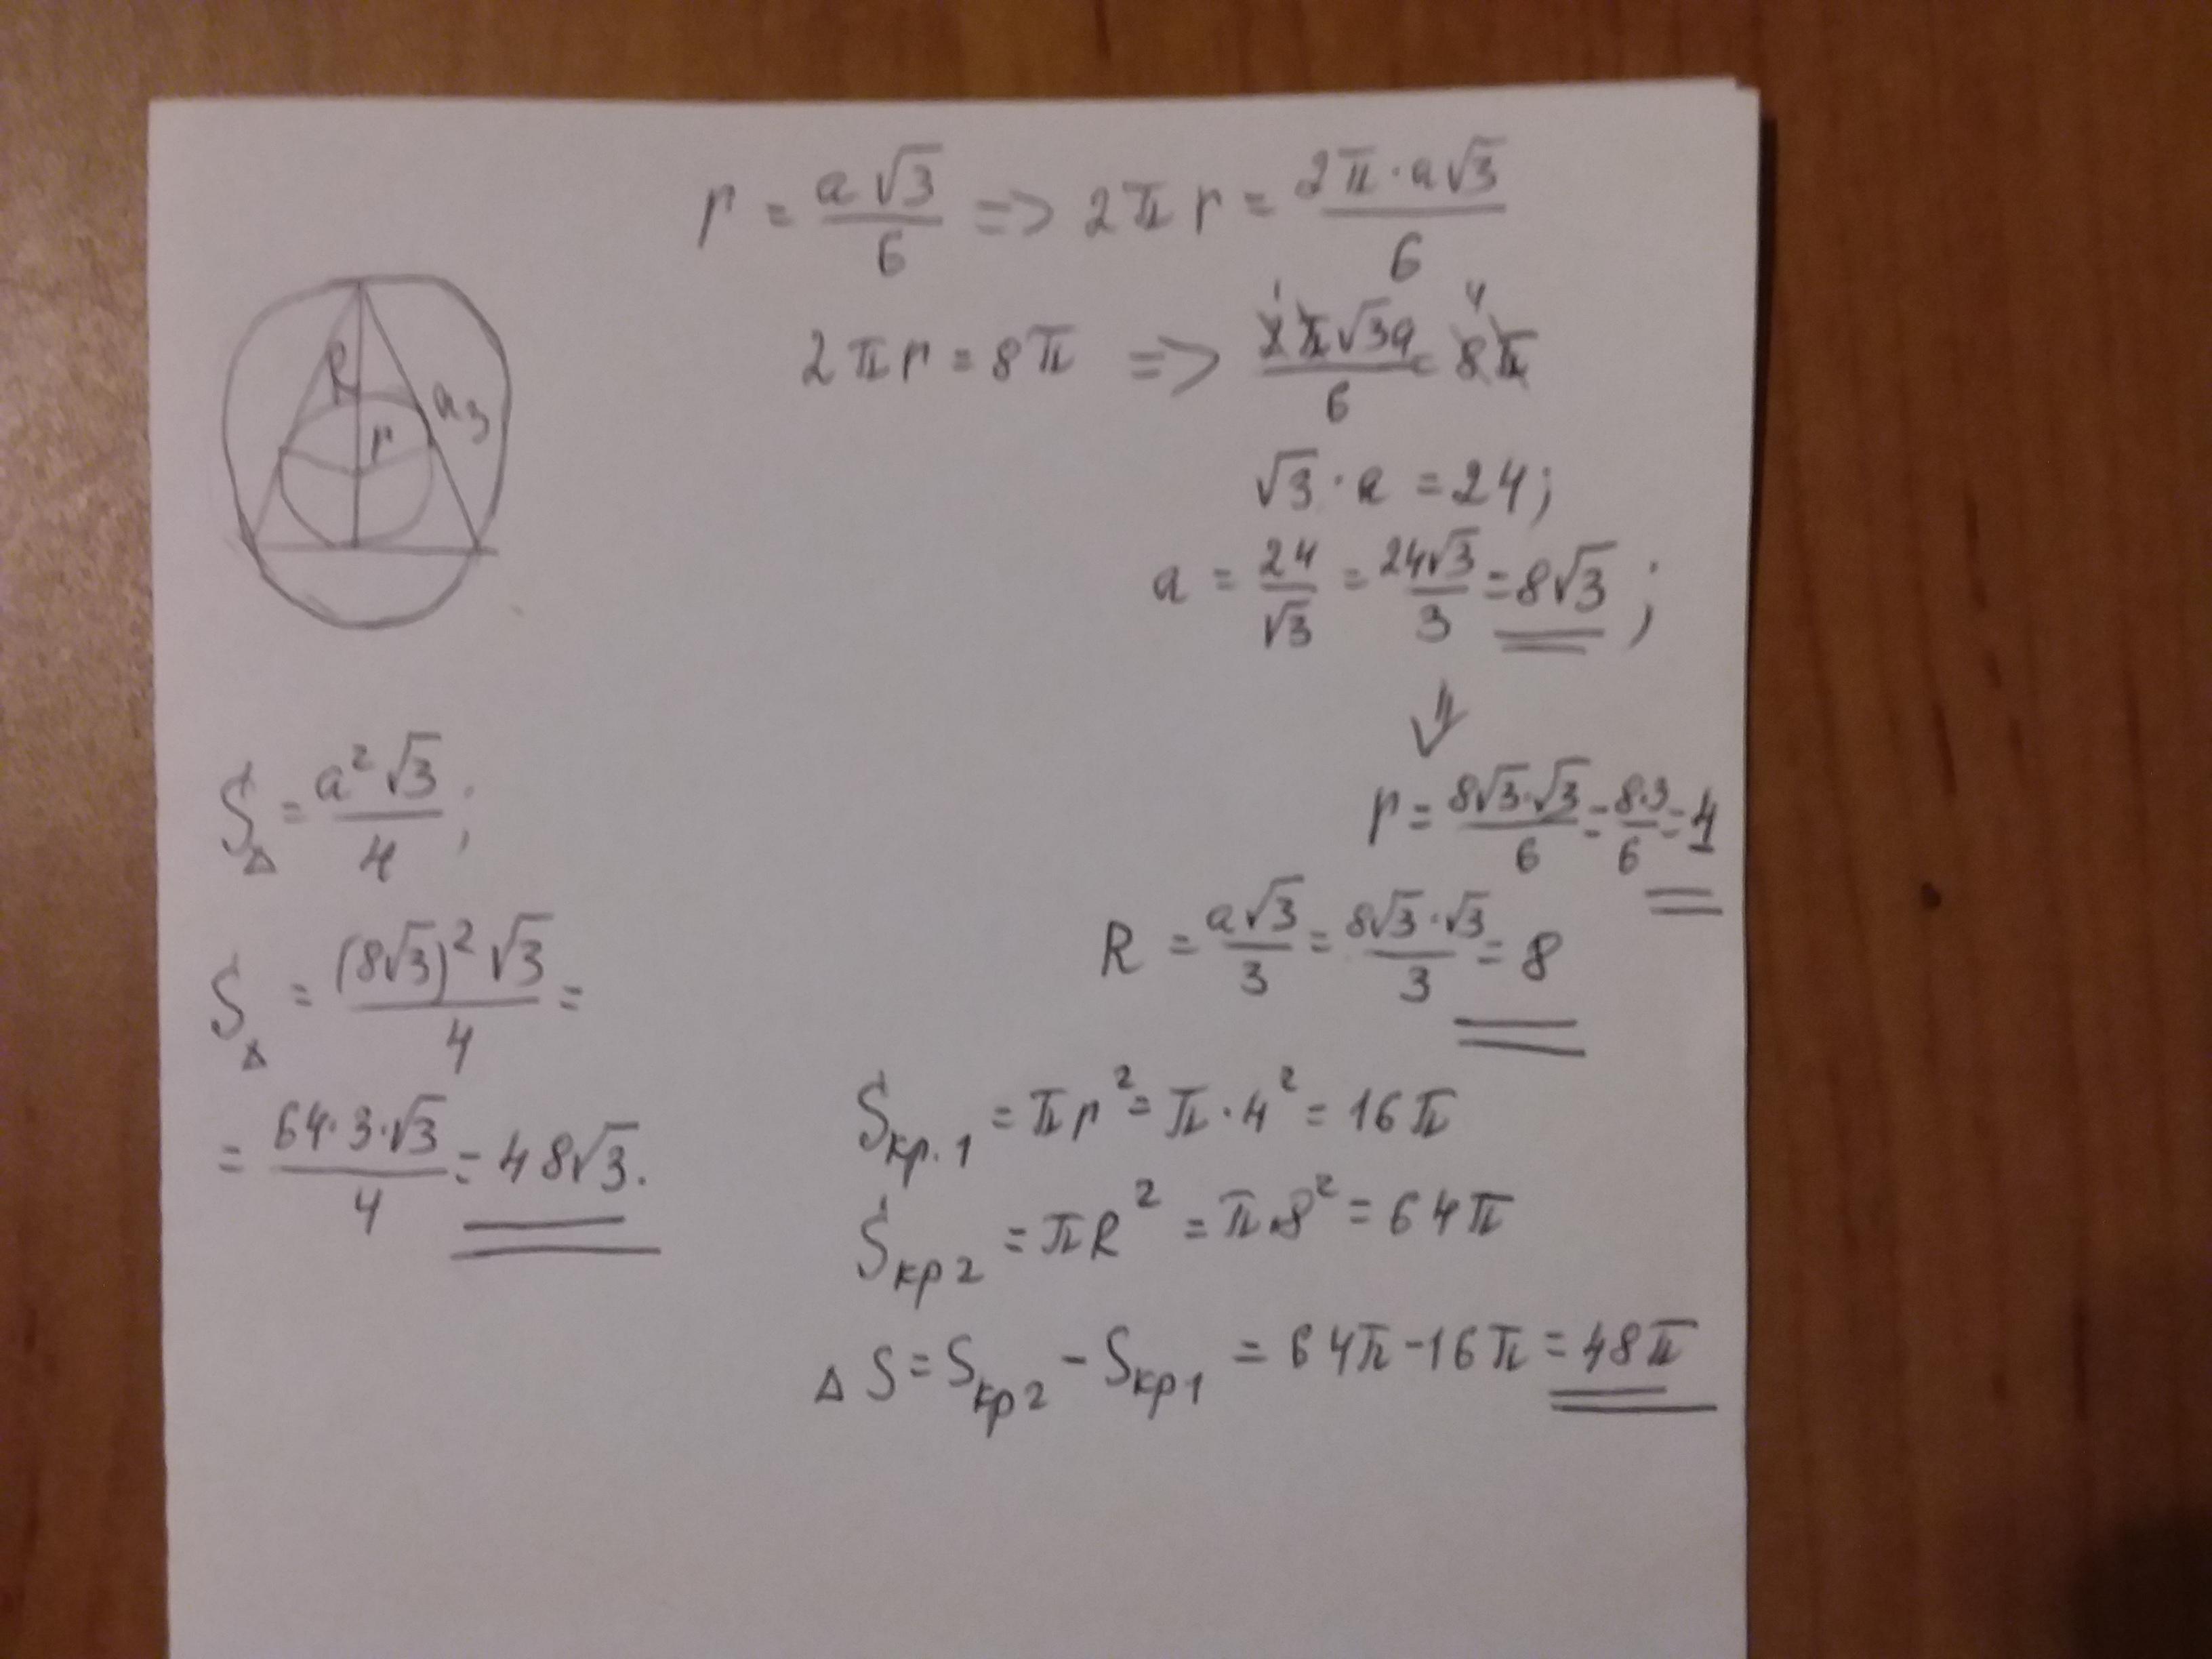 r = a√3/6 => 2πr = 2π·a√3/6
2πr = 8π => 2π√3a/6 = 8π
1 4
√3·a = 24;
a = 24/√3 = 24√3/3 = 8√3;
R
r
a₃
r = 8√3·√3/6 = 8·3/6 = 4
R = a√3/3 = 8√3·√3/3 = 8
S△ = a²√3/4;
S△ = (8√3)²√3/4 =
= 64·3·√3/4 = 48√3.
Sкр.1 = πr² = π·4² = 16π
Sкр2 = πR² = π·8² = 64π
△S = Sкр2 - Sкр1 = 64π - 16π = 48π